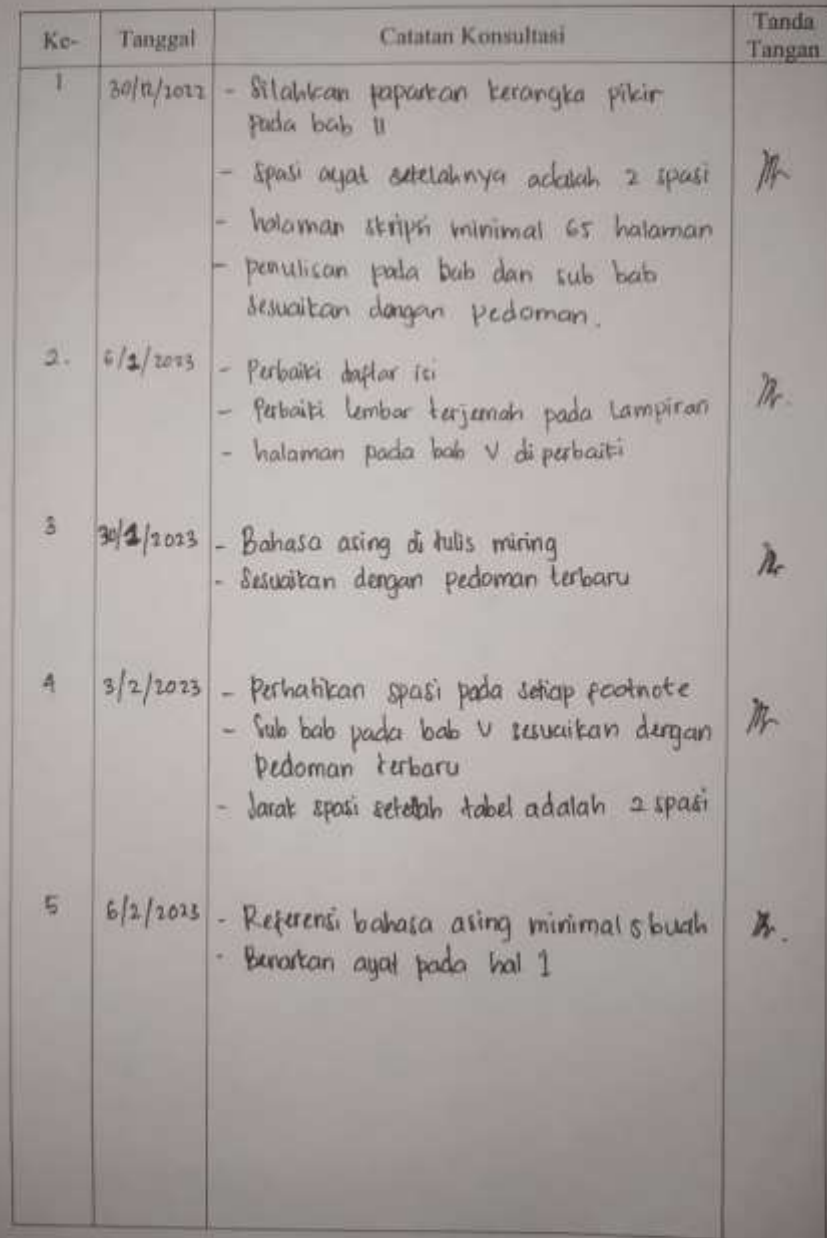 Ke- Tanggal Catatan Konsultasi Tanda Tangan
1 30/12/2022 - Silahkan paparkan kerangka pikir
pada bab II
- Spasi ayat setelahnya adalah 2 spasi
- halaman skripsi minimal 65 halaman
- penulisan pada bab dan sub bab
sesuaikan dangan pedoman.
2. 6/1/2023 - Perbaiki daftar isi
- Perbaiki lembar terjemah pada Lampiran
- halaman pada bab V di perbaiki
3 30/1/2023 - Bahasa asing di tulis miring
- Sesuaikan dengan pedoman terbaru
4 3/2/2023 - Perhatikan spasi pada setiap footnote
- Sub bab pada bab V sesuaikan dengan
Pedoman terbaru
- Jarak spasi setelah tabel adalah 2 spasi
5 6/2/2023 - Referensi bahasa asing minimal 5 buah
- Benarkan ayat pada hal 1